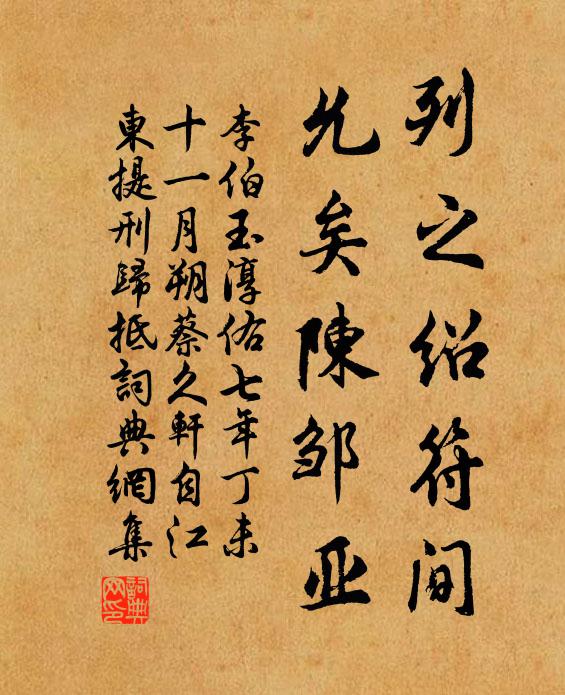 列之绍符间
允矣陳邹亚
李伯玉淳佑七年丁未
十一月朔蔡久軒自江
東提刑歸抵詞典網集
詞典网印